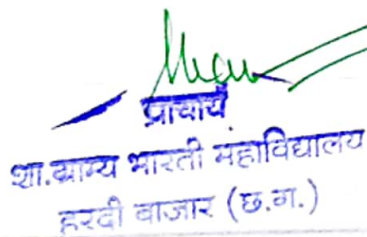 प्राचार्य
शा.ग्राम्य भारती महाविद्यालय
हरदी बाजार (छ.ग.)